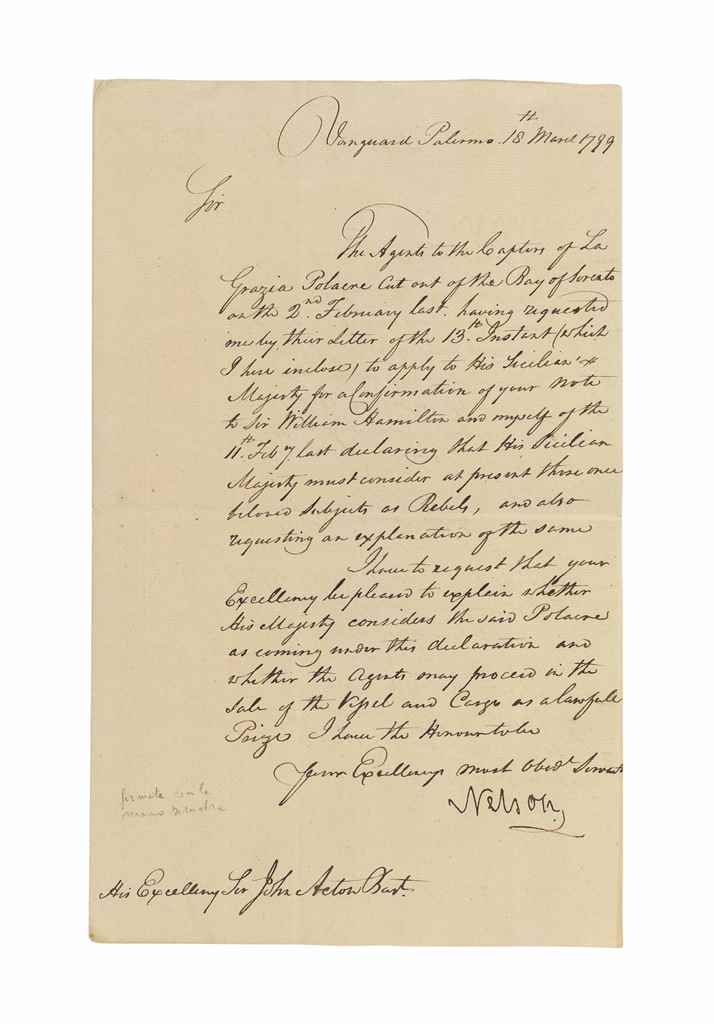 Vanguard Palermo. 18th March 1799
Sir
The Agents to the Captors of La
Grazia Polacre Cut out of the Bay of
on the 2nd February last. having requested
me by their Letter of the 13th Instant (which
I here inclose) to apply to His Sicilian
Majesty for a Confirmation of your Note
to Sir William Hamilton and myself of the
11th. Feby. last declaring that His Sicilian
Majesty must consider at present those once
beloved Subjects as Rebels, and also
requesting an explanation of the same
I have to request that your
Excellency be pleased to explain whether
His Majesty considers the said Polacre
as coming under this declaration and
whether the Agents may proceed in the
Sale of the Vessel and Cargo as a lawfull
Prize I have the Honour to be
Your Excellencys most Obedt. Servant
Nelson.
firmata con la
mano sinistra
His Excellency Sir John Acton Bart.